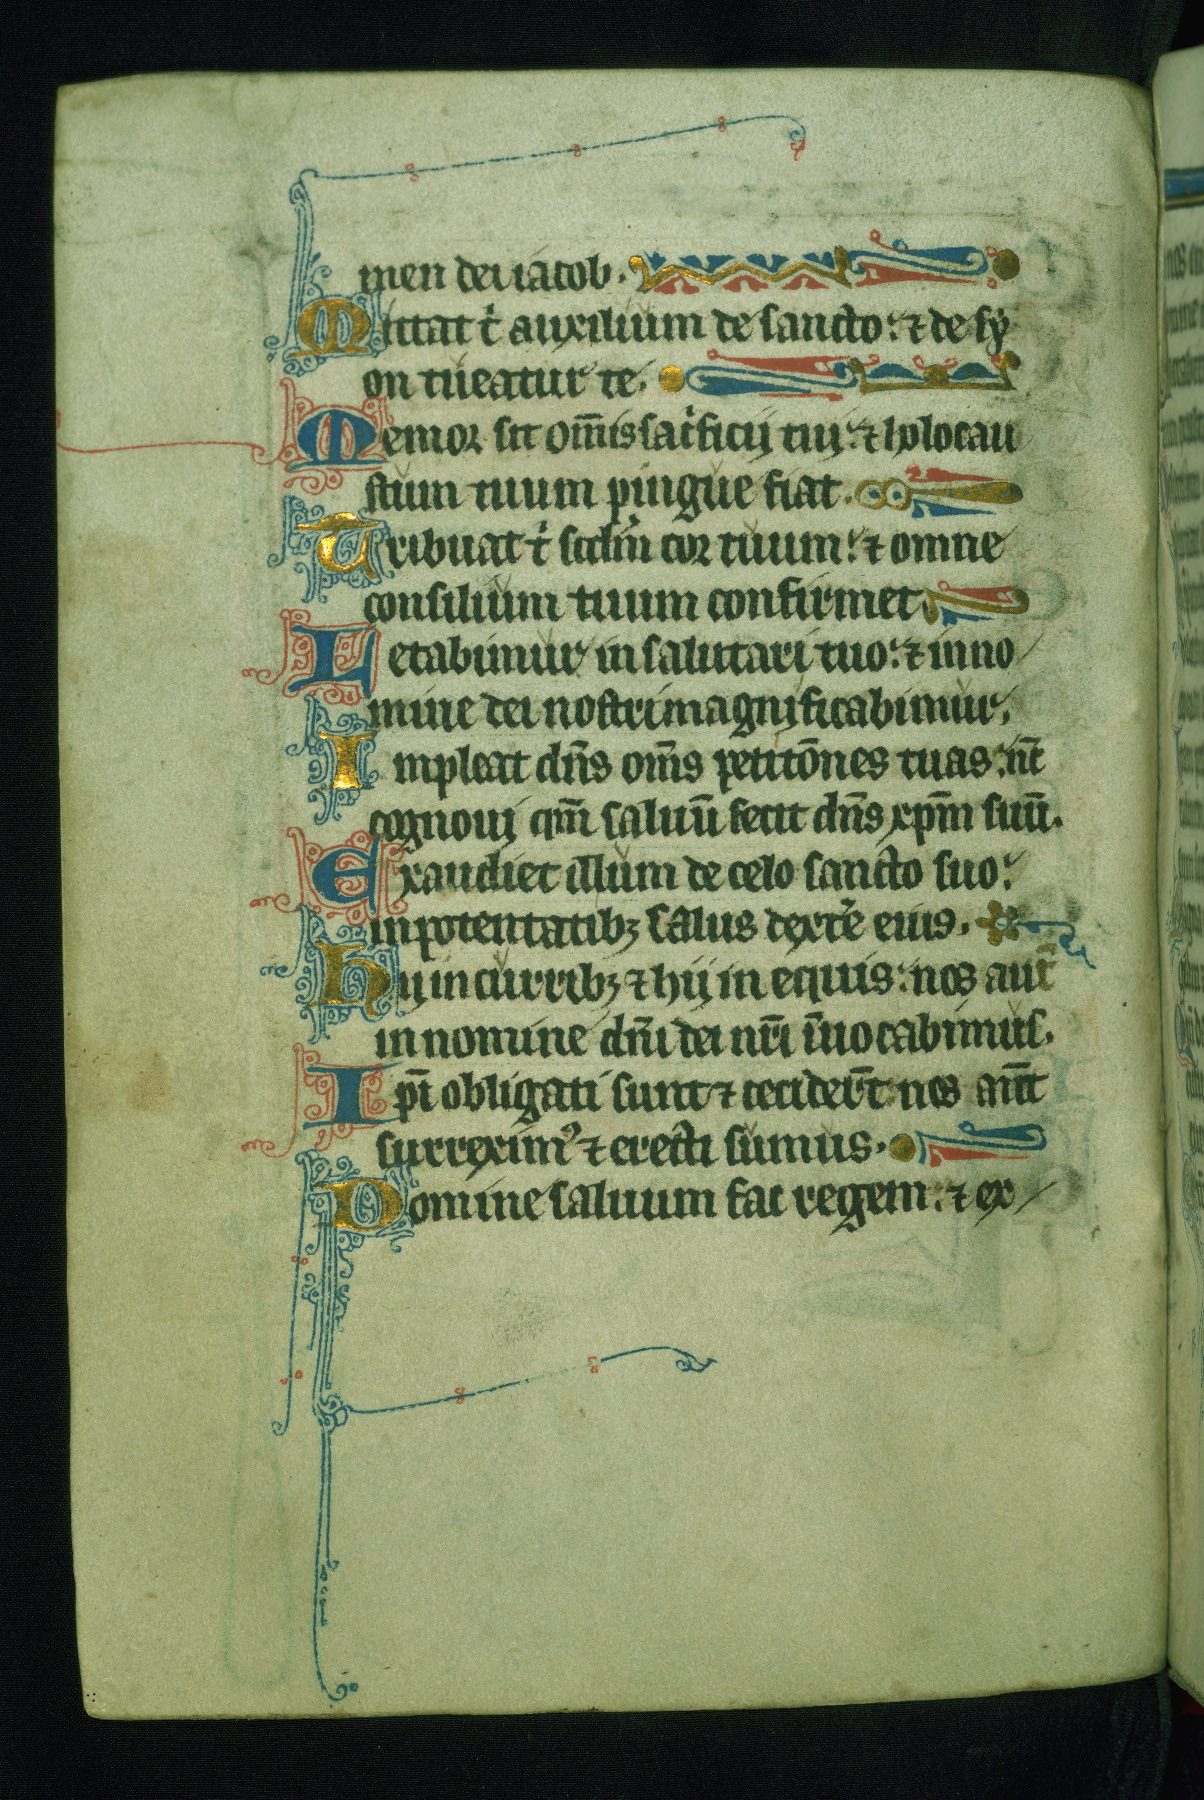 men dei iacob.
Mittat t̉ auxilium de sancto: ⁊ de sy
on tueatur te.
Memor sit om̅is sac̉ficij tuj: ⁊ holocau
stum tuum pingue fiat.
Tribuat t̉ scd̅m cor tuum: ⁊ omne
consilium tuum confirmet.
Letabimur in salutari tuo: ⁊ in no
mine dei nostri magnificabimur.
Impleat dn̅s om̅s petito̅nes tuas: nc̅
cognouj qm̅ saluu̅ fecit dn̅s xp̅m suu̅.
Exaudiet illum de celo sancto suo:
in potentatibꝫ salus dext̉e eius.
Hij in curribꝫ ⁊ hij in equis: nos aut̅
in nomine dn̅i dei nr̅i i̅uocabimus.
Ip̅i obligati sunt ⁊ cecider̅t: nos aut̅
surrexim᷒ ⁊ erecti sumus.
Domine saluum fac regem: ⁊ ex